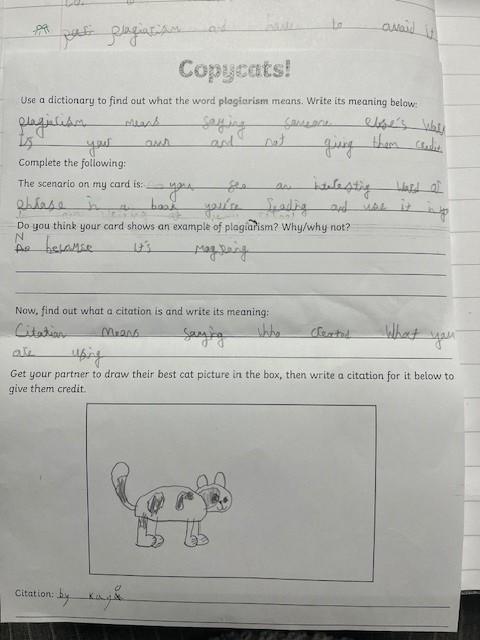 plagiarism and have to avoid it
Copycats!
Use a dictionary to find out what the word plagiarism means. Write its meaning below:
plagiarism means saying someone else's work
is your own and not giving them credit
Complete the following:
The scenario on my card is: you see an interesting word or
phrase in a book you're reading and use it in
Do you think your card shows an example of plagiarism? Why/why not?
No because it's
Now, find out what a citation is and write its meaning:
Citation means saying who created what you
are using
Get your partner to draw their best cat picture in the box, then write a citation for it below to
give them credit.
Citation: by